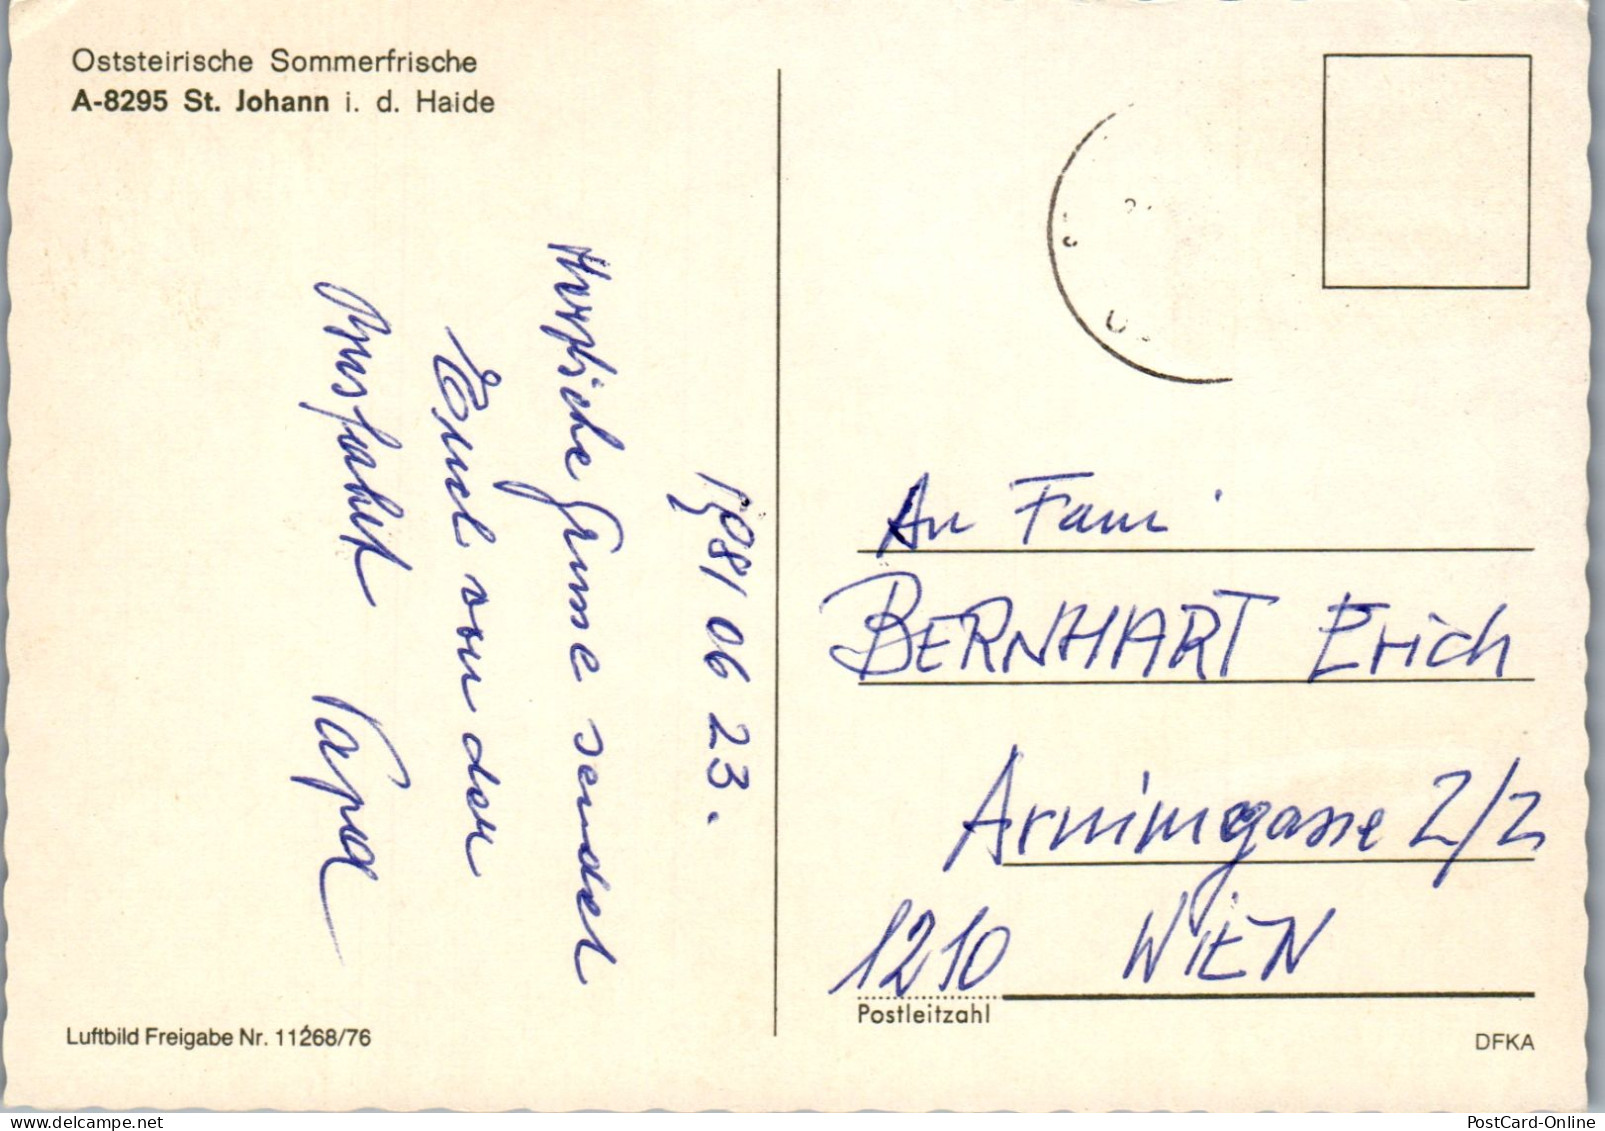 Oststeirische Sommerfrische
A-8295 St. Johann i. d. Haide
1981 06 23.
Herzliche Grüsse sendet
Euch von der
Ausfahrt Papa
An Fam.
BERNHART Erich
Arnimgasse 2/2
1210 WIEN
Postleitzahl
Luftbild Freigabe Nr. 11268/76
DFKA
PostCard-Online